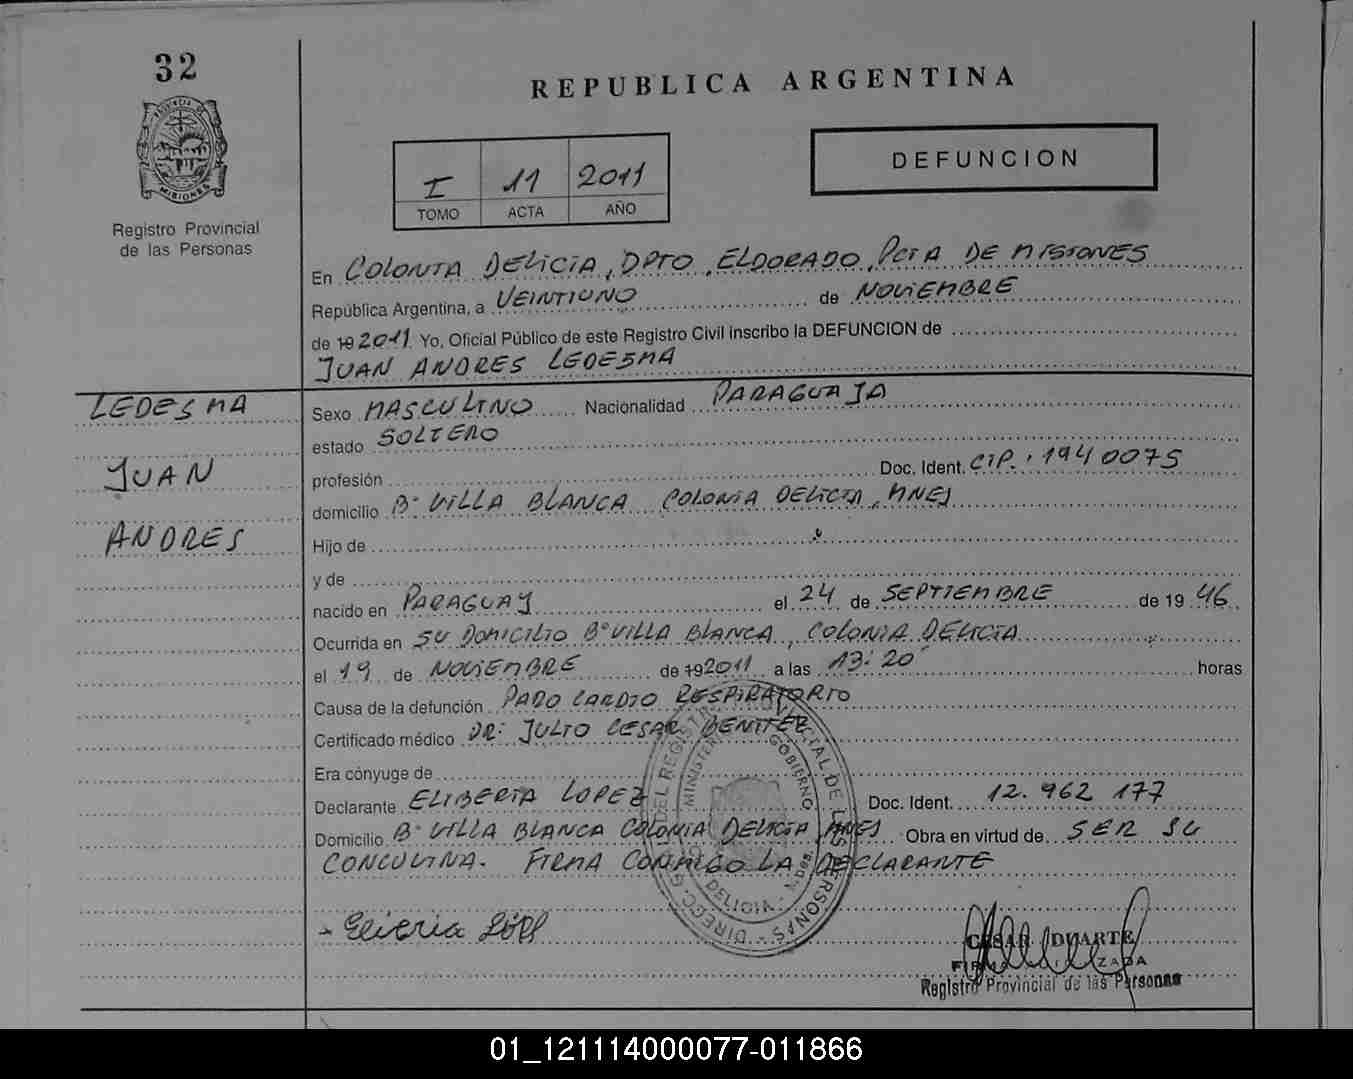 32
REPUBLICA ARGENTINA
PROVINCIA DE MISIONES
Registro Provincial
de las Personas
I 11 2011
TOMO ACTA AÑO
DEFUNCION
En COLONIA DELICIA, DPTO, ELDORADO, PCIA DE MISIONES
República Argentina, a VEINTIUNO de NOVIEMBRE
de 19 2011 Yo, Oficial Público de este Registro Civil inscribo la DEFUNCION de
JUAN ANDRES LEDESMA
LEDESMA
JUAN
ANDRES
Sexo MASCULINO Nacionalidad PARAGUAJA
estado SOLTERO
profesión Doc. Ident. CIP. 1940075
domicilio Bº VILLA BLANCA COLONIA DELICIA, MNES
Hijo de
y de
nacido en PARAGUAY el 24 de SEPTIEMBRE de 19 46
Ocurrida en SU DOMICILIO Bº VILLA BLANCA, COLONIA DELICIA
el 19 de NOVIEMBRE de 19 2011 a las 13:20 horas
Causa de la defunción PARO CARDIO RESPIRATORIO
Certificado médico DR: JULIO CESAR BENITEZ
Era cónyuge de
Declarante ELIBERIA LOPEZ Doc. Ident. 12.962 177
Domicilio Bº VILLA BLANCA COLONIA DELICIA MNES Obra en virtud de SER SU
CONCUVINA. FIRMA CONMIGO LA DECLARANTE
DIRECC. G. DEL REGISTRO PROVINCIAL DE LAS PERSONAS
MINISTERIO GOBIERNO
DELICIA - Mnes.
CESAR DUARTE
FIRMA AUTORIZADA
Registro Provincial de las Personas
01_121114000077-011866